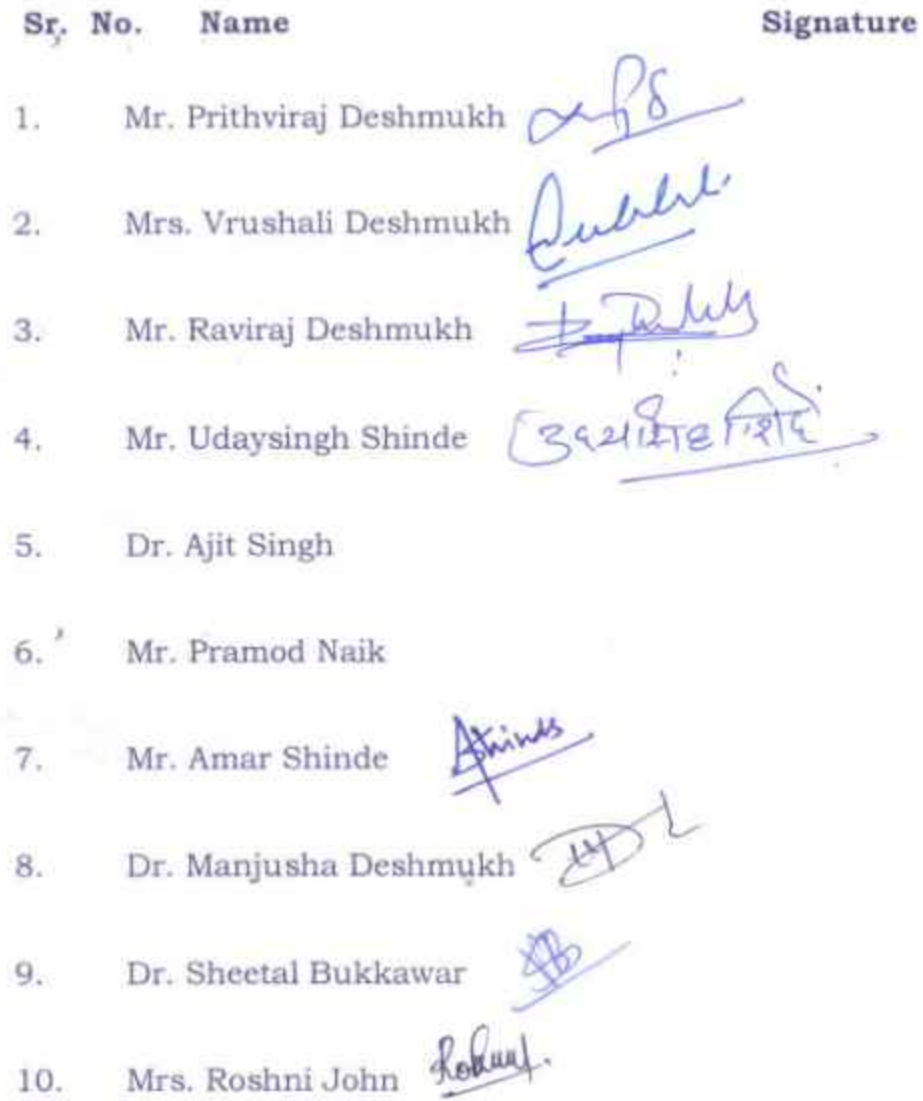 Sr. No. Name Signature
1. Mr. Prithviraj Deshmukh
2. Mrs. Vrushali Deshmukh
3. Mr. Raviraj Deshmukh
4. Mr. Udaysingh Shinde
5. Dr. Ajit Singh
6. Mr. Pramod Naik
7. Mr. Amar Shinde AShinde
8. Dr. Manjusha Deshmukh
9. Dr. Sheetal Bukkawar
10. Mrs. Roshni John